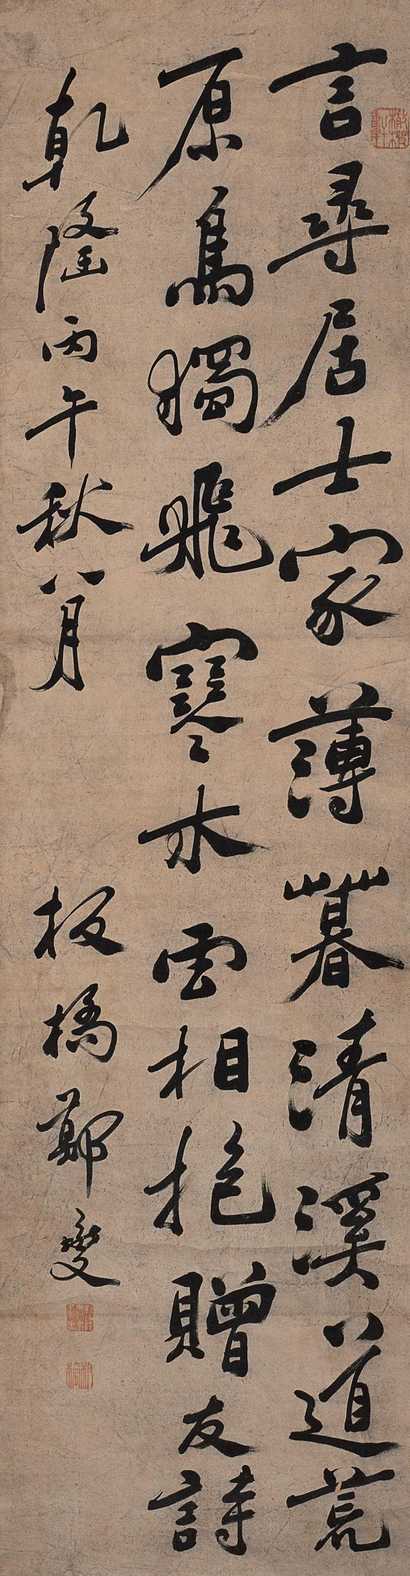 言尋居士家薄暮清溪八道荒
原鳥獨飛寒水雲相抱贈友詩
乾隆丙午秋八月 板橋鄭燮